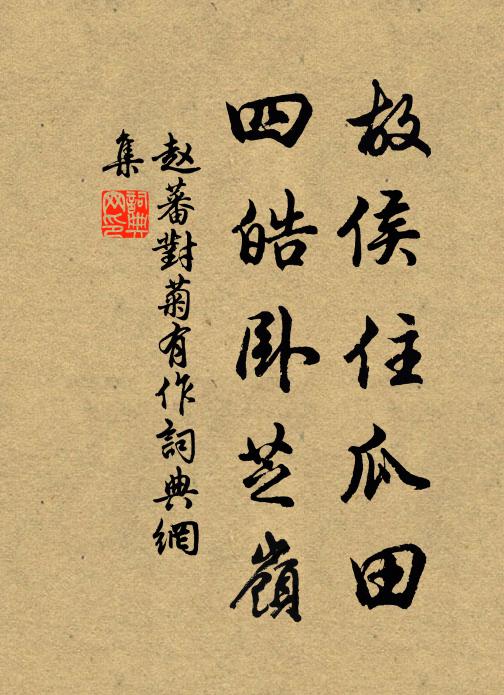 故侯住瓜田
四皓卧芝嶺
赵蕃對菊有作詞典網
集
詞典
网印